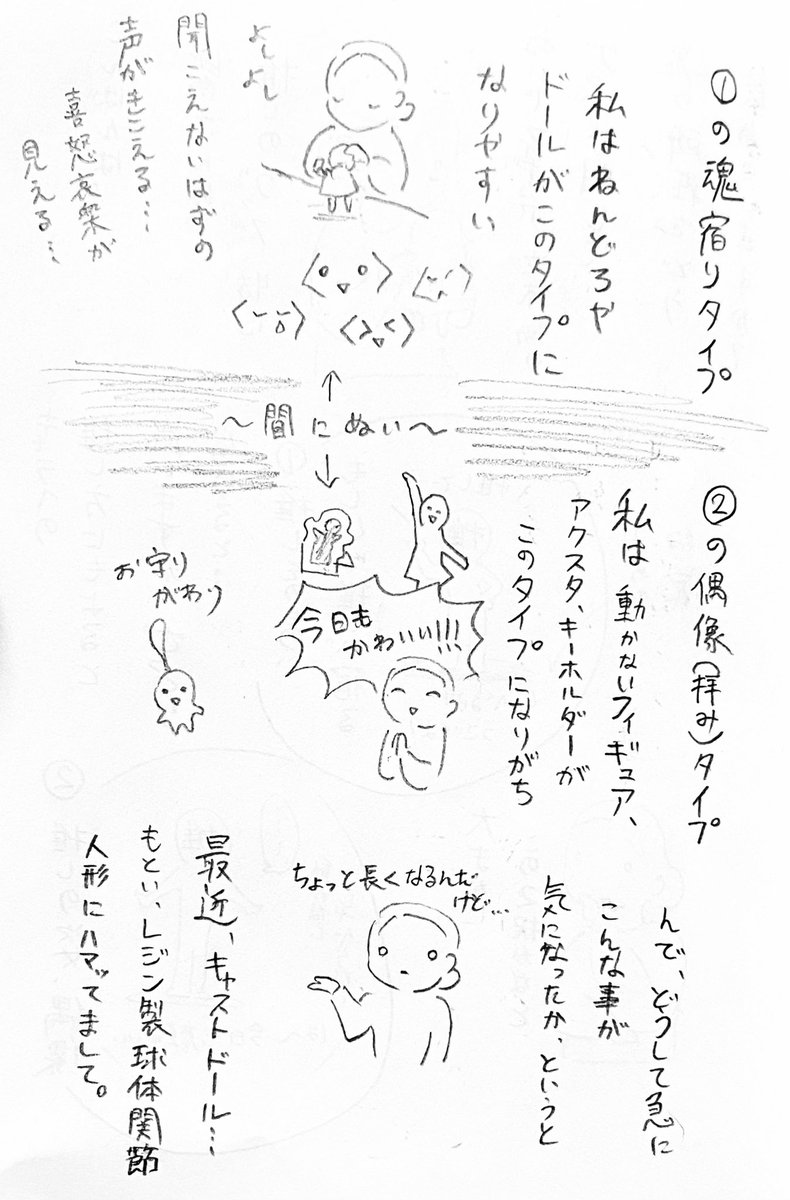 ①の魂宿りタイプ
私はねんどろや
ドールがこのタイプに
なりやすい
よしよし
聞こえないはずの
声がきこえる…
喜怒哀楽が
見える…
～間にぬい～
②の偶像(拝み)タイプ
私は動かないフィギュア、
アクスタ、キーホルダーが
このタイプになりがち
今日も
かわいい!!!
お守り
がわり
んで、どうして急に
こんな事が
気になったか、というと
ちょっと長くなるんだ
けど…
最近、キャストドール…
もとい、レジン製球体関節
人形にハマッてまして。